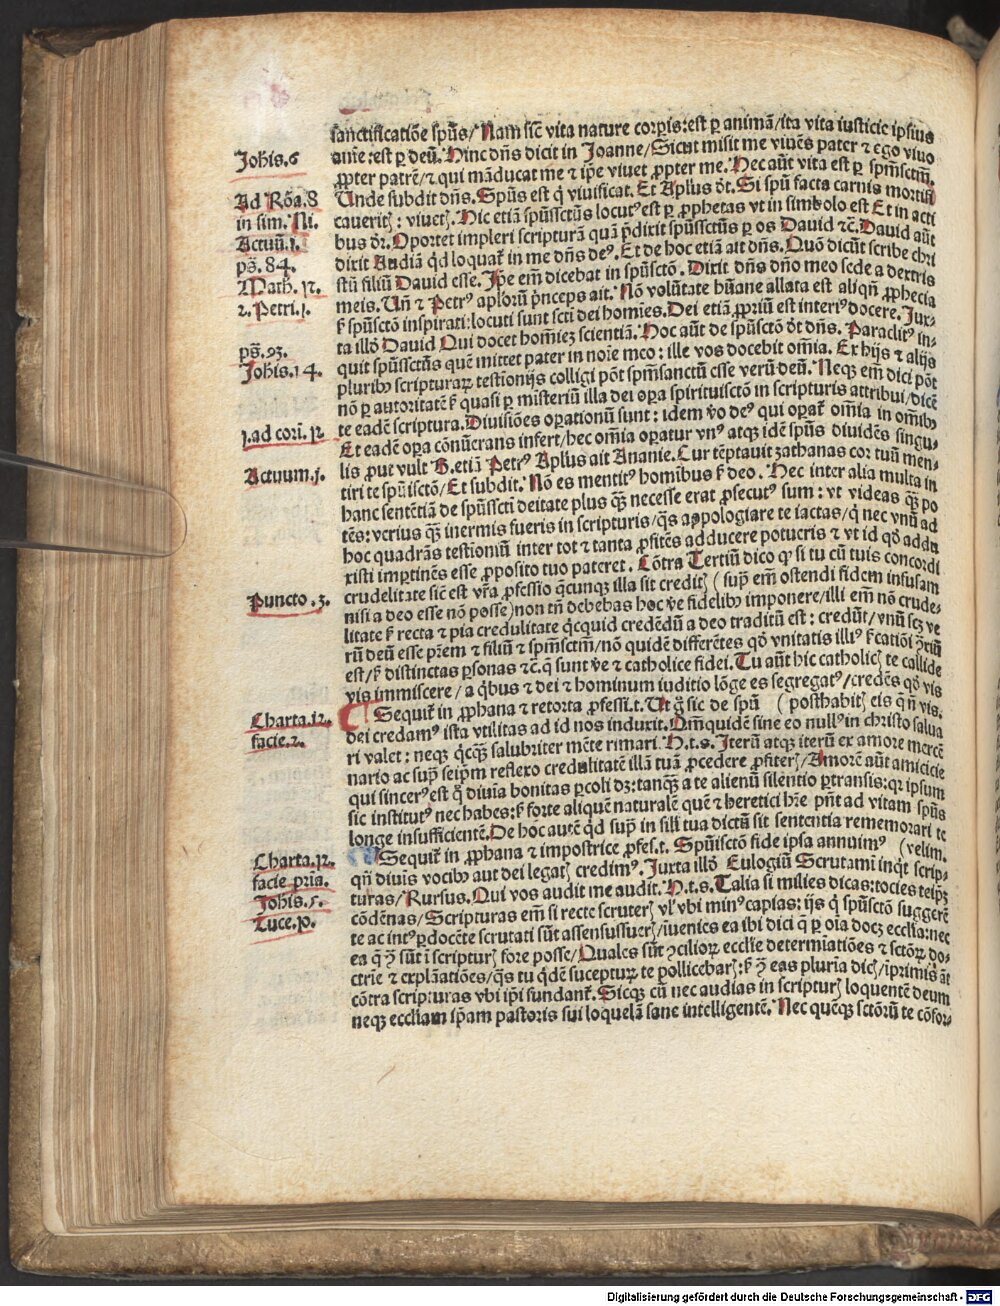 sanctificatiõe spũs/ Nam sic̃ vita nature corpis: est ꝑ animã/ita vita iusticie ipsius
Johis.6
aĩe: est ꝑ deũ. Hinc dñs dicit in Joanne/Sicut misit me viuẽs pater ⁊ ego viuo
ꝓpter patrẽ/⁊ qui mãducat me ⁊ ip̃e viuet ꝓpter me. Hec aũt vita est ꝑ spm̃sctm̃.
Ad Rõa.8
Unde subdit dñs. Spũs est q̃ viuificat. Et Aplus õt. Si spũ facta carnis mortifi
in sim. Ni.
caueritꝭ: viuetꝭ. Hic etiã spũssctũs locutꝰ est ꝑ ꝓphetas vt in simbolo est Et in acti
Actuũ.1.
bus õr. Oportet impleri scripturã quã p̃dixit spũssctũs ꝑ os Dauid ⁊c̃. Dauid aũt
pš.84.
dixit Audiã qd̃ loquat̃ in me dñs deꝰ. Et de hoc etiã ait dñs. Quõ dicũt scribe chri
Math.12.
stũ filiũ Dauid esse. Ip̃e em̃ dicebat in spũsctõ. Dixit dñs dño meo sede a dextris
2.Petri.1.
meis. Uñ ⁊ Petrꝰ aplorũ p̃nceps ait. Nõ volũtate hũane allata est aliqñ ꝓphecia
ꝭ spũsctõ inspirati: locuti sunt scti dei homies. Dei etiã ꝓpriũ est interiꝰ docere. Jux⸗
ta illõ Dauid Qui docet homieꝫ scientiã. Hoc aũt de spũsctõ õt dñs. Paraclitꝰ in⸗
pš.93.
quit spũssctũs quẽ mittet pater in noĩe meo: ille vos docebit oм̃ia. Ex hijs ⁊ alijs
Johis.14.
pluribꝰ scripturaꝝ testionijs colligi põt spm̃sanctũ esse verũ deũ. Neqꝫ em̃ dici põt
nõ ꝑ autoritatẽ ꝭ quasi ꝑ misteriũ illa dei oꝑa spirituisctõ in scripturis attribui/dicẽ
te eadẽ scriptura. Diuisiões oꝑationũ sunt: idem ṽo deꝰ qui oꝑat̃ om̃ia in om̃ibꝰ
1.ad cori.12.
Et eadẽ oꝑa cõnũerans infert/hec om̃ia oꝑatur vnꝰ atqꝫ idẽ spũs diuidẽs singu⸗
lis ꝓut vult B. etiã Petrꝰ Aplus ait Ananie. Cur tẽptauit zathanas cor tuũ men⸗
Actuum.5.
tiri te spũisctõ/Et subdit. Nõ es mentitꝰ homibus ꝭ deo. Hec inter alia multa in
hanc sentẽtiã de spũsscti deitate plus q̃ꝫ necesse erat ꝓsecutꝰ sum: vt videas q̃ꝫ po
tẽs: verius q̃ꝫ inermis fueris in scripturis/q̃s appologiare te iactas/q̃ nec vnũ ad
hoc quadrãs testioniũ inter tot ⁊ tanta ꝓfitẽs adducere potueris ⁊ vt id qõ addu
xisti imꝑtinẽs esse ꝓposito tuo pateret. Cõtra Tertiũ dico qꝰ si tu cũ tuis concordi
crudelitate sic̃ est vr̃a ꝓfessio q̃cunqꝫ illa sit creditꝭ (sup̃ em̃ ostendi fidem infusam
Puncto.3.
nisi a deo esse nõ posse) non tñ debebas hoc ṽe fidelibꝰ imponere/illi em̃ nõ crude⸗
litate ꝭ recta ⁊ pia credulitate q̃cquid credẽdũ a deo traditũ est: credũt/vnũ scꝫ ve
rũ deũ esse pr̃em ⁊ filiũ ⁊ spm̃sctm̃/nõ quidẽ differẽtes qõ vnitatis illiꝰ p̃catiõi ꝯ̃riũ
est/ꝭ distinctas ꝑsonas ⁊c̃. q̃ sunt ṽe ⁊ catholice fidei. Tu aũt hic catholicꝭ te callide
vis immiscere/a q̃bus ⁊ dei ⁊ hominum iuditio lõge es segregatꝰ/credẽs qõ vis
Charta.12.
Sequit̃ in ꝓphana ⁊ retorta ꝓfessi.t. Ut g̃ sic de spũ (posthabitꝭ eis q̃ ñ vis.
dei credamꝰ ista vtilitas ad id nos induxit. Qm̃ quidẽ sine eo nullꝰ in christo salua
facie.2.
ri valet: neqꝫ q̃cq̃ꝫ salubriter mẽte rimari. H.t.s. Iterũ atqꝫ iterũ ex amore mercẽ
nario ac sup̃ seip̃m reflexo credulitatẽ illã tuã ꝓcedere ꝓfiterꝭ/Amorẽ aũt amicicie
qui sincerꝰ est q̃ diuĩa bonitas ꝑcoli dꝫ: tanq̃ꝫ a te alienũ silentio ꝑtransis: qr ipsum
sic institutꝰ nec habes: ꝭ forte aliquẽ naturalẽ quẽ ⁊ heretici hr̃e pñt ad vitam spũs
longe insufficientẽ. De hoc autẽ qd̃ sup̃ in sili tua dictũ sit sententia rememorari te
Charta.12.
Sequit̃ in ꝓphana ⁊ impostrice ꝓfes.t. Spũisctõ fide ipsa annuimꝰ (velim.
facie prĩa.
qñ diuĩs vocibꝰ aut dei legatꝭ credimꝰ. Juxta illõ Eulogiũ Scrutamĩ inq̃t scrip⸗
Johis.5.
turas/Rursus. Qui vos audit me audit. H.t.s. Talia si milies dicas: tocies teip̃ꝫ
Luce.10.
cõdẽnas/Scripturas em̃ si recte scruterꝭ vl̃ vbi minꝰ capias: ijs q̃ spũsctõ suggerẽ
te ac intꝰ ꝑdocẽte scrutati sũt assensussuerꝭ/iũenies ea ibi dici q̃ ꝑ oĩa doceꝫ eccl̃ia: nec
ea q̃ ꝯ̃ sũt ĩ scripturꝭ fore posse/Quales sũt ꝯcilioꝝ eccl̃ie determiatiões ⁊ sctõꝝ do⸗
ctrie ⁊ explãatiões/q̃s tu q̃dẽ suceptuꝝ te pollicebarꝭ: ꝭ ꝯ̃ eas plurĩa dicꝭ/ĩprimis añt
cõtra scripturas vbi ip̃i fundant̃. Sicqꝫ cũ nec audias in scripturꝭ loquentẽ deum
neqꝫ eccl̃iam ip̃am pastoris sui loquelã sane intelligentẽ. Nec queqꝫ sctõrũ te cõfor⸗
Digitalisierung gefördert durch die Deutsche Forschungsgemeinschaft - DFG